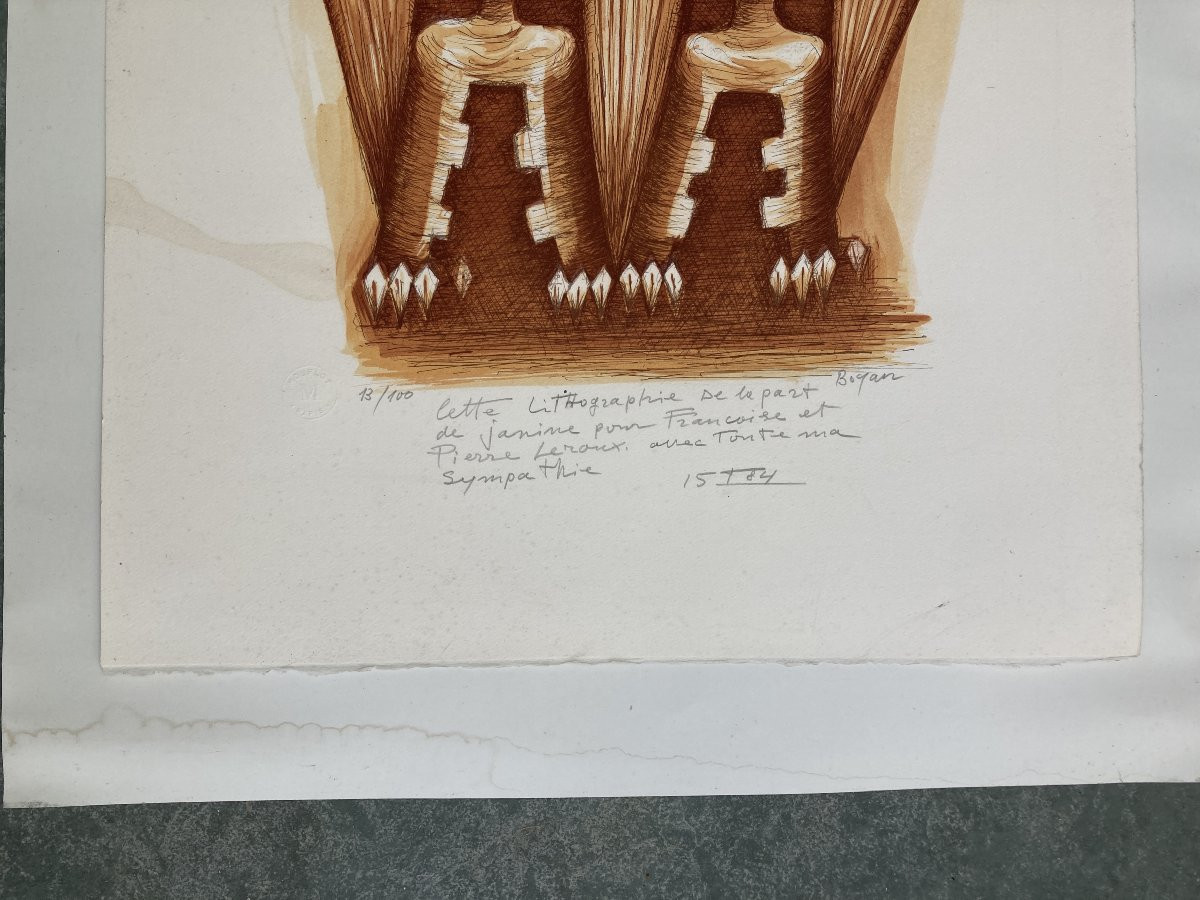 13/100
Boyan
Cette Lithographie De la part
de janine pour Francoise et
Pierre Leroux. avec Toute ma
Sympathie
15 I 84